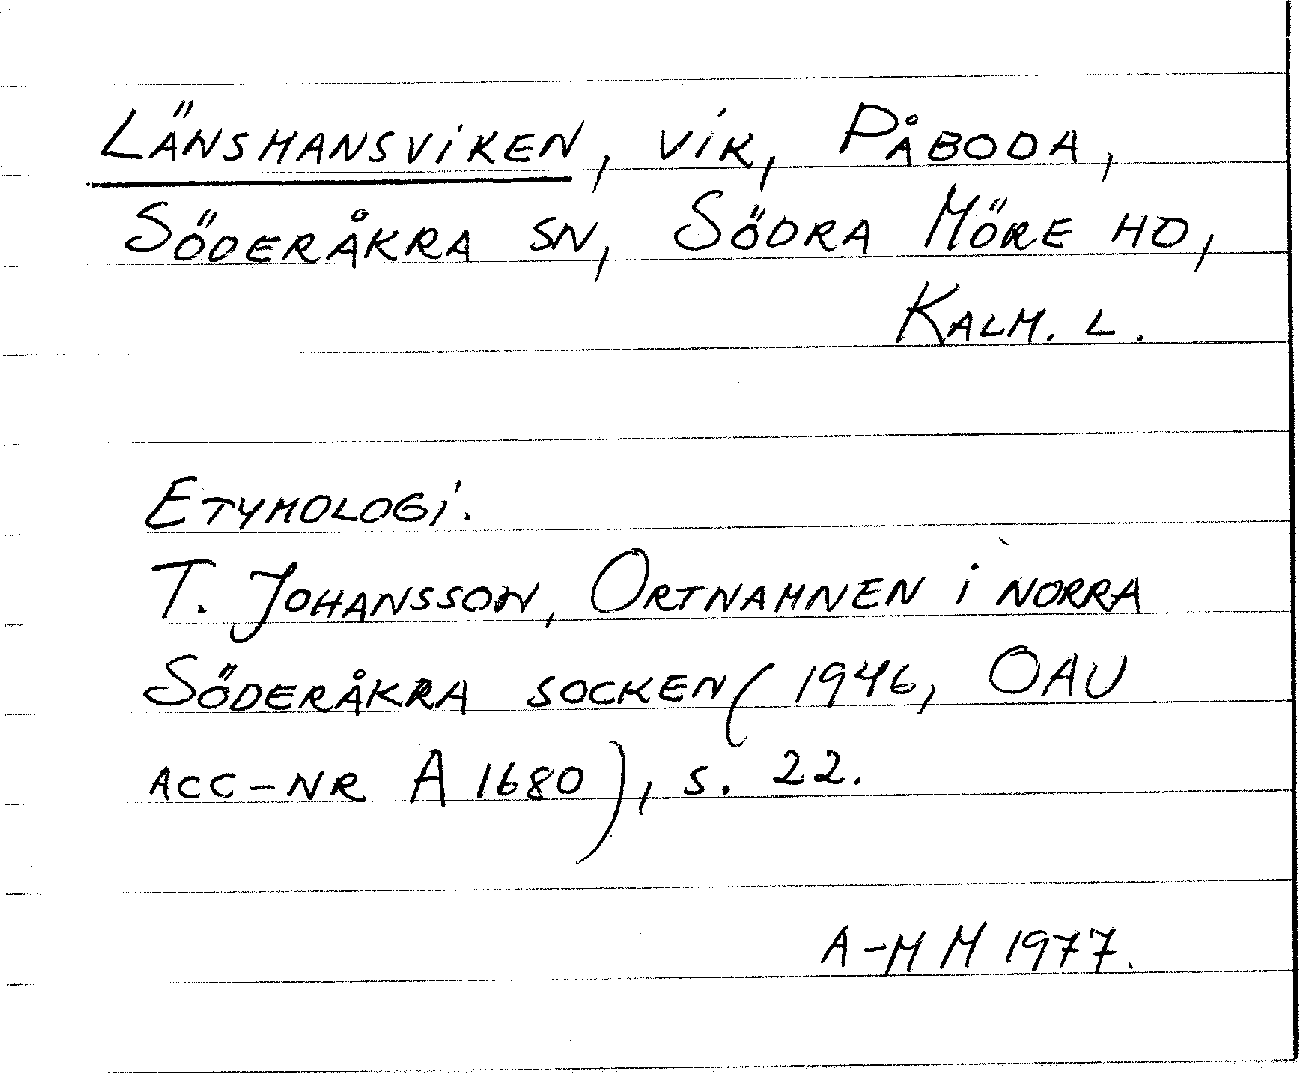 LÄNSMANSVIKEN, VIK, PÅBODA,
SÖDERÅKRA SN, SÖDRA MÖRE HD,
KALM. L.
ETYMOLOGI.
T. JOHANSSON, ORTNAMNEN I NORRA
SÖDERÅKRA SOCKEN (1946, OAU
ACC-NR A 1680), S. 22.
A-M M 1977.